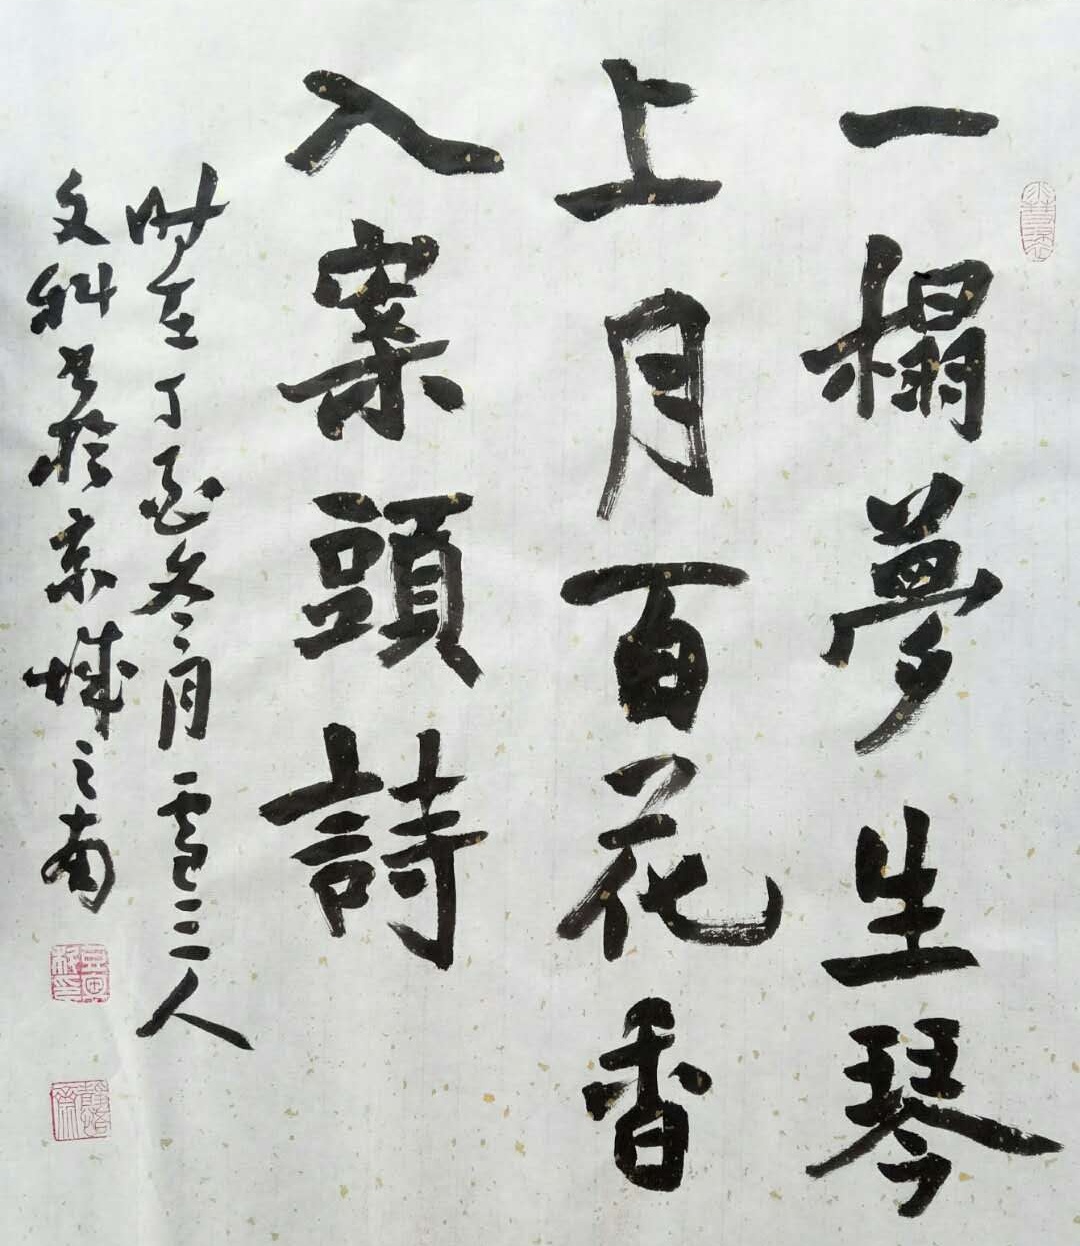 一榻夢生琴
上月百花香
入案頭詩
時在丁酉冬月三人
文科書於京城之南